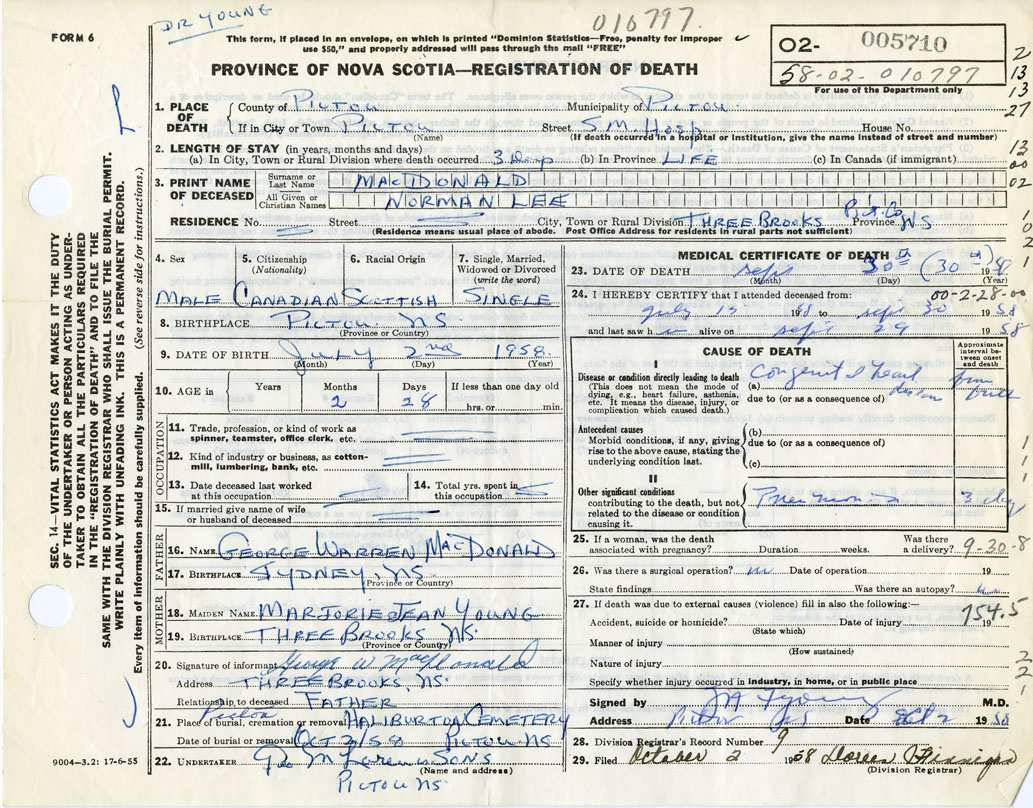 DR YOUNG
010797.
FORM 6
This form, if placed in an envelope, on which is printed "Dominion Statistics—Free, penalty for improper
use $50," and properly addressed will pass through the mail "FREE"
02- 005710
58-02-010797
For use of the Department only
PROVINCE OF NOVA SCOTIA—REGISTRATION OF DEATH
2
13
13
27
13
00
02
1. PLACE OF DEATH
County of PICTOU Municipality of PICTOU
If in City or Town PICTOU Street S.M. Hosp House No.
(Name) (If death occurred in a hospital or institution, give the name instead of street and number)
2. LENGTH OF STAY (in years, months and days)
(a) In City, Town or Rural Division where death occurred 3 Days (b) In Province LIFE (c) In Canada (if immigrant)
3. PRINT NAME OF DECEASED
Surname or Last Name MACDONALD
All Given or Christian Names NORMAN LEE
RESIDENCE No. Street City, Town or Rural Division THREE BROOKS Pict. Co. Province NS
(Residence means usual place of abode. Post Office Address for residents in rural parts not sufficient)
4. Sex
MALE
5. Citizenship
(Nationality)
CANADIAN
6. Racial Origin
SCOTTISH
7. Single, Married, Widowed or Divorced
(write the word)
SINGLE
8. BIRTHPLACE PICTOU NS.
(Province or Country)
9. DATE OF BIRTH JULY 2nd 1958.
(Month) (Day) (Year)
10. AGE in
Years Months Days If less than one day old
2 28 hrs. or min.
OCCUPATION
11. Trade, profession, or kind of work as
spinner, teamster, office clerk, etc.
12. Kind of industry or business, as cotton-
mill, lumbering, bank, etc.
13. Date deceased last worked
at this occupation
14. Total yrs. spent in
this occupation
15. If married give name of wife
or husband of deceased
FATHER
16. NAME GEORGE WARREN MACDONALD
17. BIRTHPLACE SYDNEY, NS
(Province or Country)
MOTHER
18. MAIDEN NAME MARJORIE JEAN YOUNG
19. BIRTHPLACE THREE BROOKS NS.
(Province or Country)
20. Signature of informant George W MacDonald
Address THREE BROOKS, NS.
Relationship to deceased FATHER
Pictou
21. Place of burial, cremation or removal HALIBURTON CEMETERY
Date of burial or removal OCT 2/58 PICTOU NS
22. UNDERTAKER Geo M SONS
(Name and address)
PICTOU NS.
9004-3.2: 17-6-55
MEDICAL CERTIFICATE OF DEATH
23. DATE OF DEATH Sept 30th (30th) 1958
(Month) (Day) (Year)
24. I HEREBY CERTIFY that I attended deceased from: 00-2-28-00
July 1958 to Sept 30 1958
and last saw him alive on Sept 29 1958
CAUSE OF DEATH
Approximate interval between onset and death
I
Disease or condition directly leading to death
(This does not mean the mode of dying, e.g., heart failure, asthenia, etc. It means the disease, injury, or complication which caused death.)
(a) Congenital heart disease from birth
due to (or as a consequence of)
Antecedent causes
Morbid conditions, if any, giving rise to the above cause, stating the underlying condition last.
(b)
due to (or as a consequence of)
(c)
II
Other significant conditions
contributing to the death, but not related to the disease or condition causing it.
Pneumonia 3 days
25. If a woman, was the death Was there
associated with pregnancy? Duration weeks. a delivery? 9-30-8
26. Was there a surgical operation? no Date of operation 19
State findings Was there an autopsy? no
27. If death was due to external causes (violence) fill in also the following:—
754.5
Accident, suicide or homicide? Date of injury 19
(State which)
Manner of injury
(How sustained)
Nature of injury
Specify whether injury occurred in industry, in home, or in public place
Signed by Young M.D.
Address Pictou NS Date Oct 2 1958
28. Division Registrar's Record Number 9
29. Filed October 2 1958 Doreen
(Division Registrar)
SEC. 14—VITAL STATISTICS ACT MAKES IT THE DUTY
OF THE UNDERTAKER OR PERSON ACTING AS UNDER-
TAKER TO OBTAIN ALL THE PARTICULARS REQUIRED
IN THE "REGISTRATION OF DEATH" AND TO FILE THE
SAME WITH THE DIVISION REGISTRAR WHO SHALL ISSUE THE BURIAL PERMIT.
WRITE PLAINLY WITH UNFADING INK. THIS IS A PERMANENT RECORD.
Every item of Information should be carefully supplied. (See reverse side for instructions.)